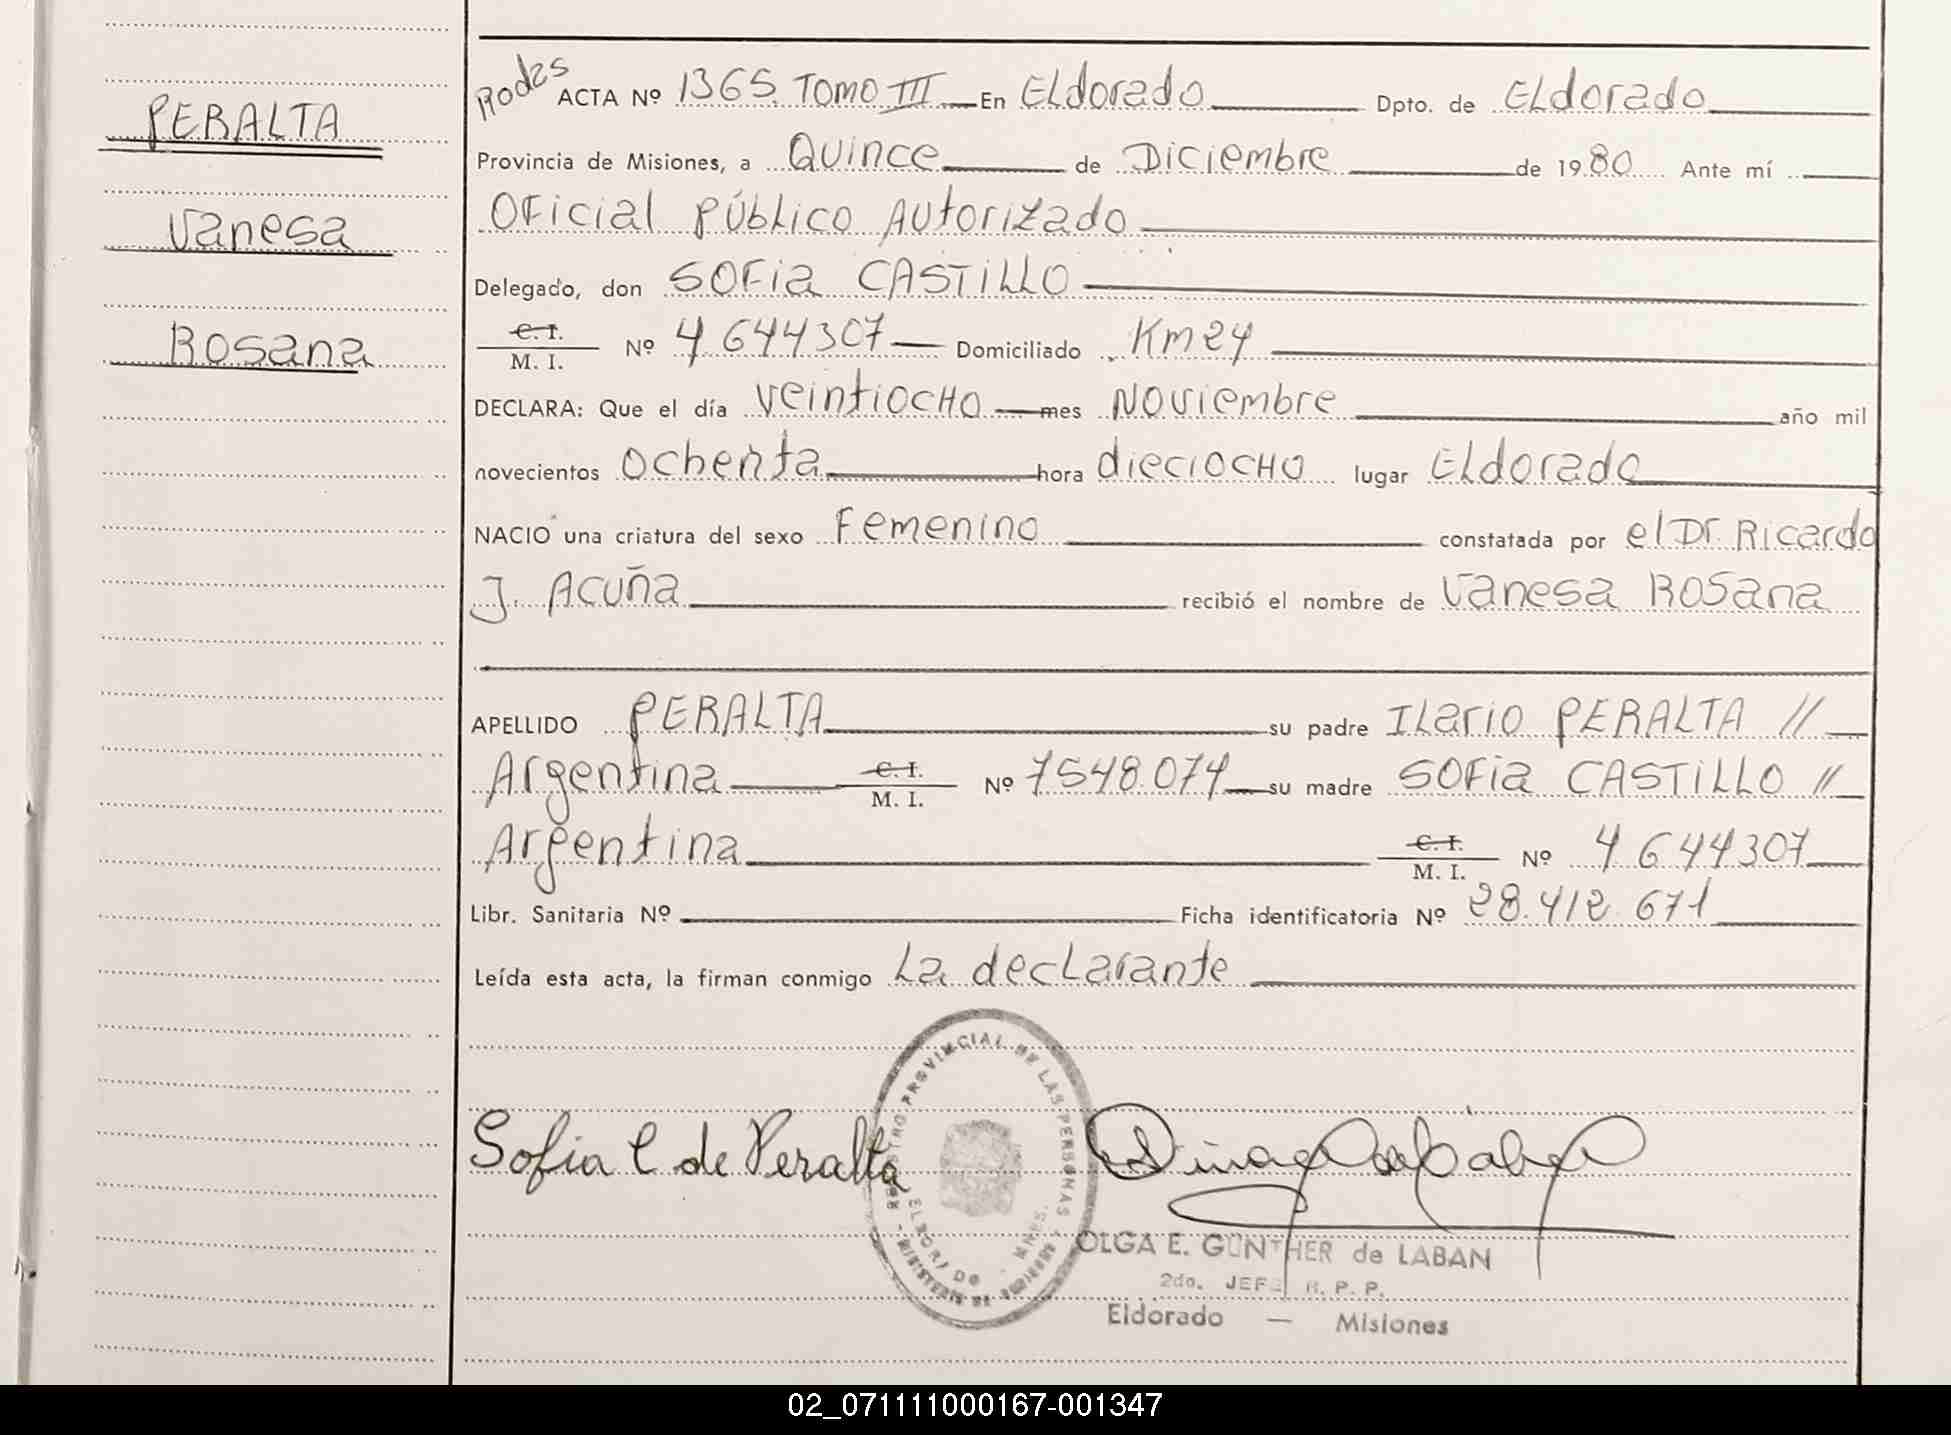 PERALTA
Vanesa
Rosana
Rodes ACTA Nº 1365. TOMO III En ELdorado Dpto. de ELdorado
Provincia de Misiones, a Quince de Diciembre de 1980 Ante mí
OFicial Público Autorizado
Delegado, don SOFia CASTILLO
C. I.
M. I. Nº 4.644307 Domiciliado Km24
DECLARA: Que el día veintiocHo mes Noviembre año mil
novecientos ochenta hora dieciocHo lugar ELdorado
NACIO una criatura del sexo Femenino constatada por el Dr. Ricardo
J. Acuña recibió el nombre de Vanesa Rosana
APELLIDO PERALTA su padre ILario PERALTA //
Argentina C. I. M. I. Nº 7548.074 su madre SOFia CASTILLO //
Argentina C. I. M. I. Nº 4.644307
Libr. Sanitaria Nº Ficha identificatoria Nº 28.412.671
Leída esta acta, la firman conmigo La decLarante
PROVINCIAL DE LAS PERSONAS
ELDORADO - MNES.
Sofia C de Peralta
OLGA E. GÜNTHER de LABAN
2do. JEFE R. P. P.
Eldorado — Misiones
02_071111000167-001347